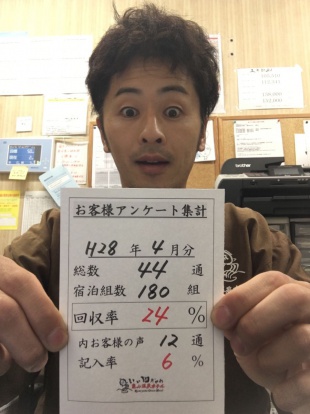 お客様アンケート集計
H28 年 4 月分
総数 44 通
宿泊組数 180 組
回収率 24 %
内お客様の声 12 通
記入率 6 %
brother